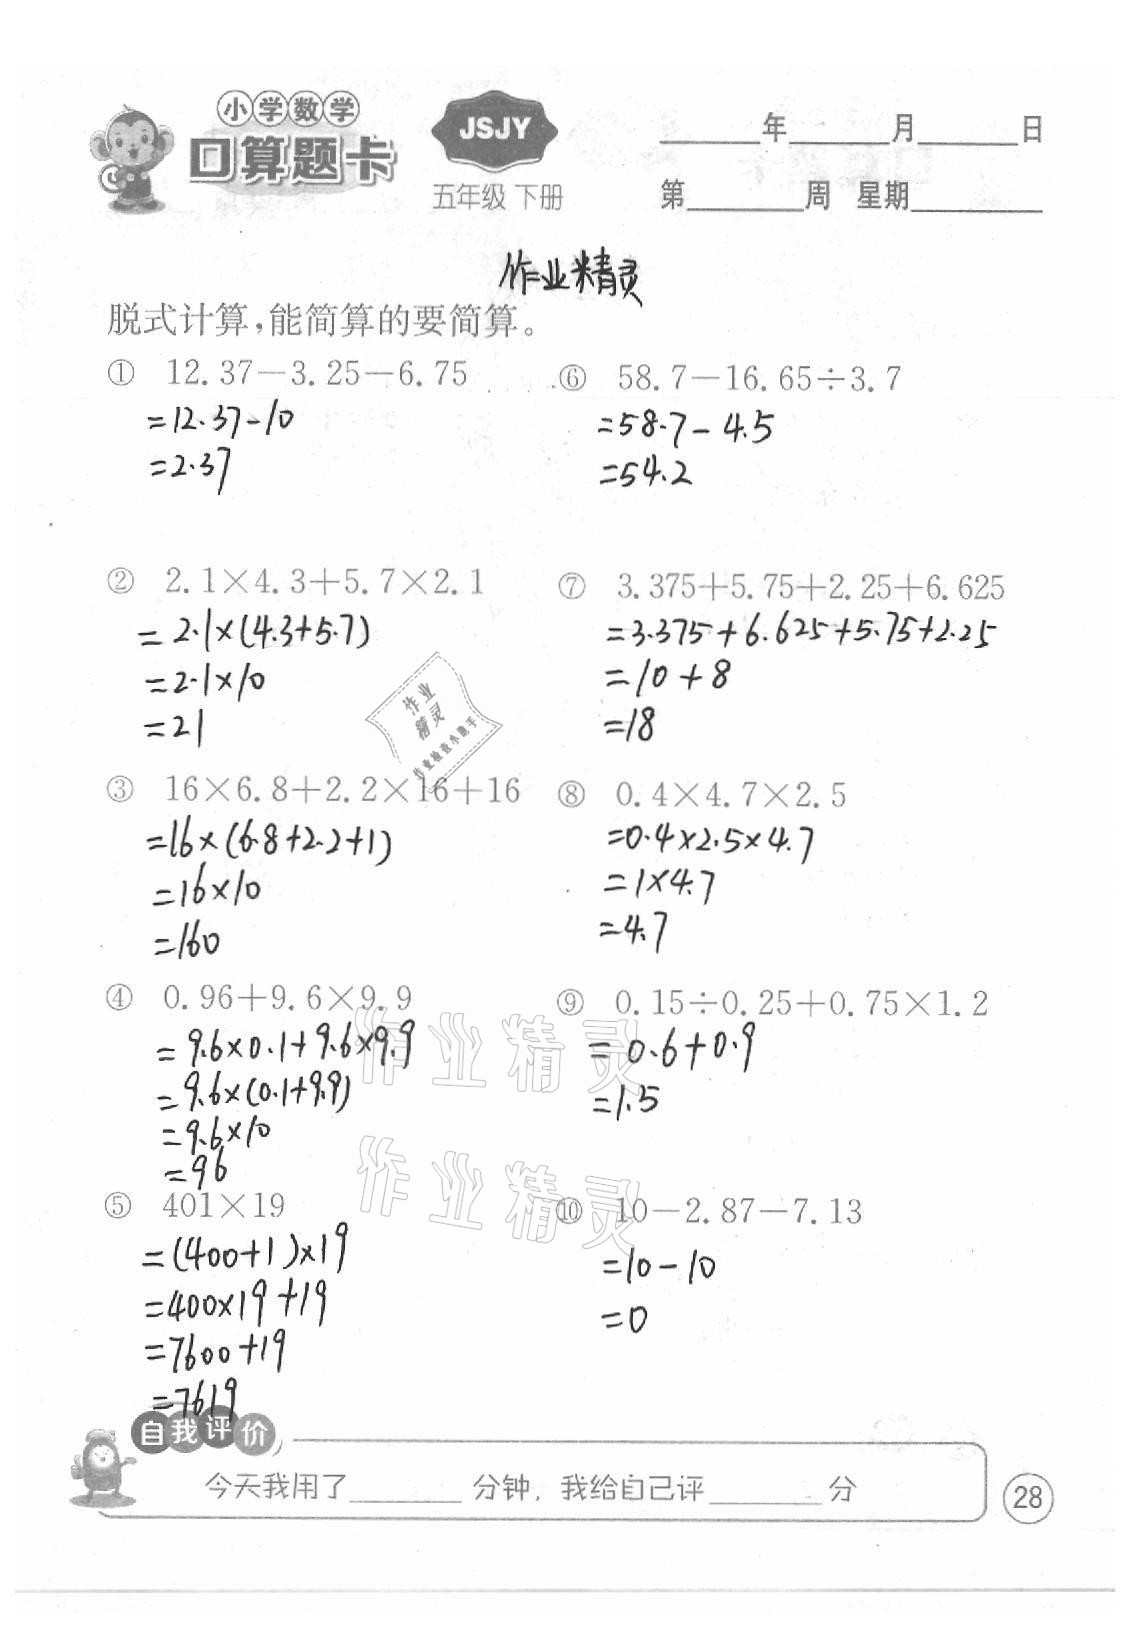 小学数学
口算题卡
JSJY
五年级 下册
______年______月______日
第______周 星期______
作业精灵
脱式计算,能简算的要简算。
① 12.37-3.25-6.75
=12.37-10
=2.37
② 2.1×4.3+5.7×2.1
=2.1×(4.3+5.7)
=2.1×10
=21
③ 16×6.8+2.2×16+16
=16×(6.8+2.2+1)
=16×10
=160
④ 0.96+9.6×9.9
=9.6×0.1+9.6×9.9
=9.6×(0.1+9.9)
=9.6×10
=96
⑤ 401×19
=(400+1)×19
=400×19+19
=7600+19
=7619
⑥ 58.7-16.65÷3.7
=58.7-4.5
=54.2
⑦ 3.375+5.75+2.25+6.625
=3.375+6.625+5.75+2.25
=10+8
=18
⑧ 0.4×4.7×2.5
=0.4×2.5×4.7
=1×4.7
=4.7
⑨ 0.15÷0.25+0.75×1.2
=0.6+0.9
=1.5
⑩ 10-2.87-7.13
=10-10
=0
作业
精灵
作业检查小助手
作业精灵
作业精灵
自我评价
今天我用了______分钟,我给自己评______分
28